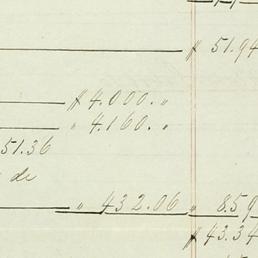 $ 51.94
$ 4.000. "
" 4.160. "
51.36
de
" 432.06 " 8.59
$ 43.34